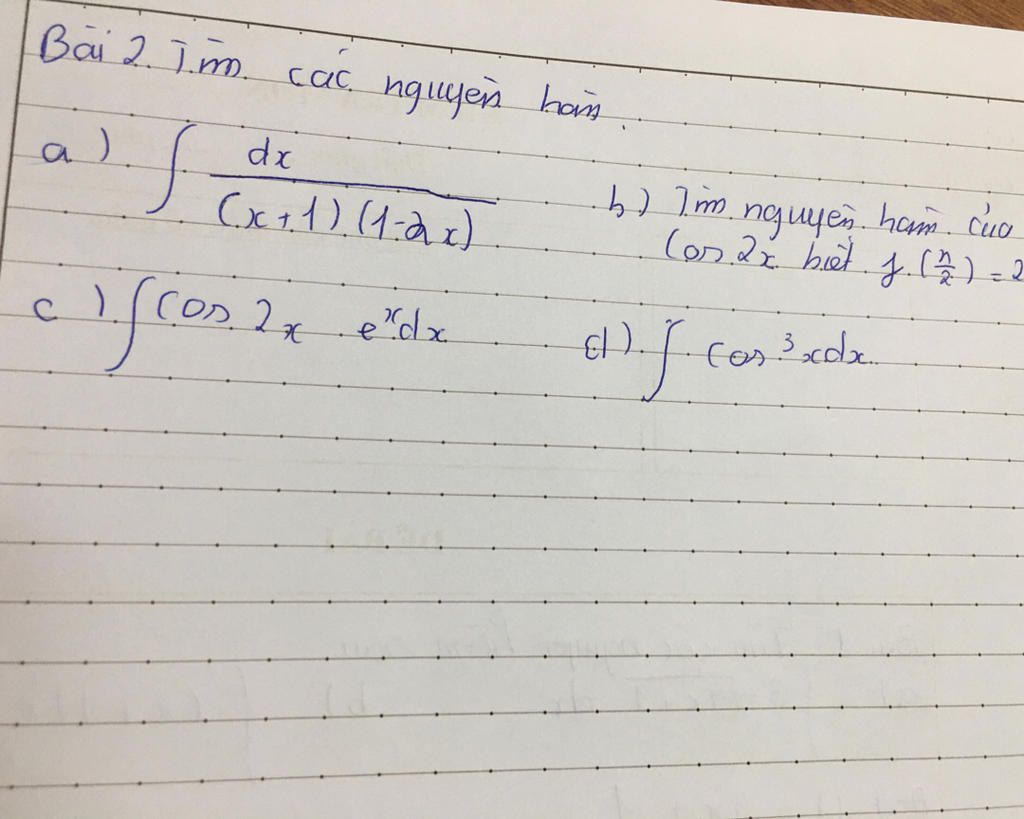 Bài 2. Tìm các nguyên hàm.
a) ∫ dx / (x+1)(1-2x)
b) Tìm nguyên hàm của
cos 2x biết f(π/2) = 2
c) ∫ cos 2x e^x dx
d) ∫ cos³ x dx